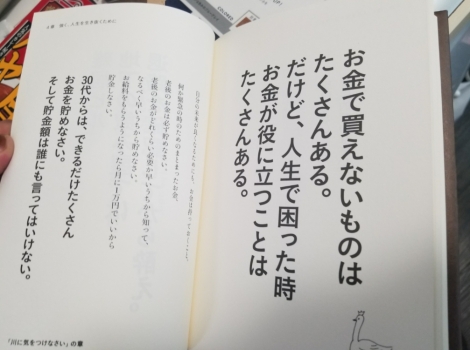 お金で買えないものは
たくさんある。
だけど、人生で困った時
お金が役に立つことは
たくさんある。
何か緊急の時のためのまとまったお金、
老後のお金は必ず貯めなさい。
老後のお金がどれくらい必要か早いうちから知って、
なるべく早いうちから貯めなさい。
お給料をもらうようになったら月に1万円でいいから
貯金しなさい。
30代からは、できるだけたくさん
お金を貯めなさい。
そして貯金額は誰にも言ってはいけない。
「川に男をつけなさい」の章